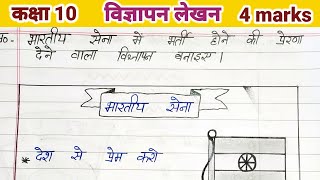 कक्षा 10 विज्ञापन लेखन 4 marks
भारतीय सेना मे भर्ती होने की प्रेरणा
देने वाला विज्ञापन बनाइए।
भारतीय सेना
* देश से प्रेम करो